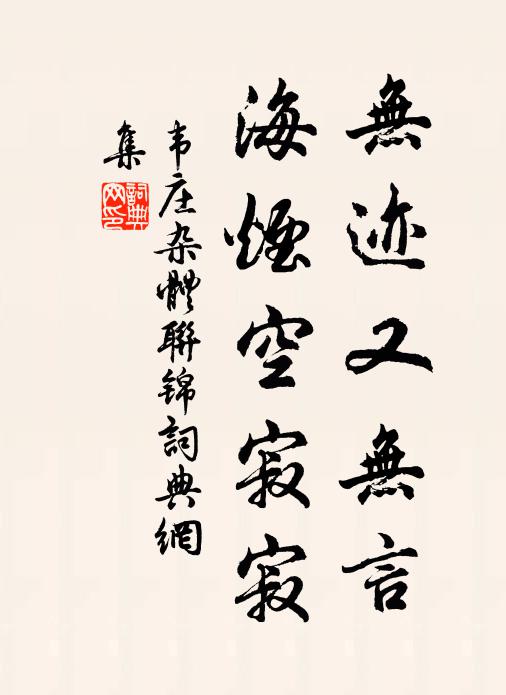 無迹又無言
海煙空寂寂
韦庄杂體聯錦詞典網
集
詞典
网印